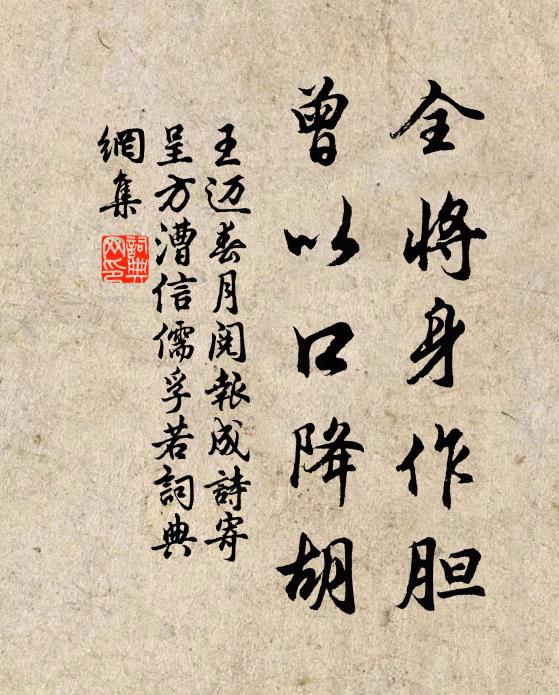 全将身作胆
曾以口降胡
王迈春月阅报成詩寄
呈方漕信儒孚若詞典
網集
詞典網印